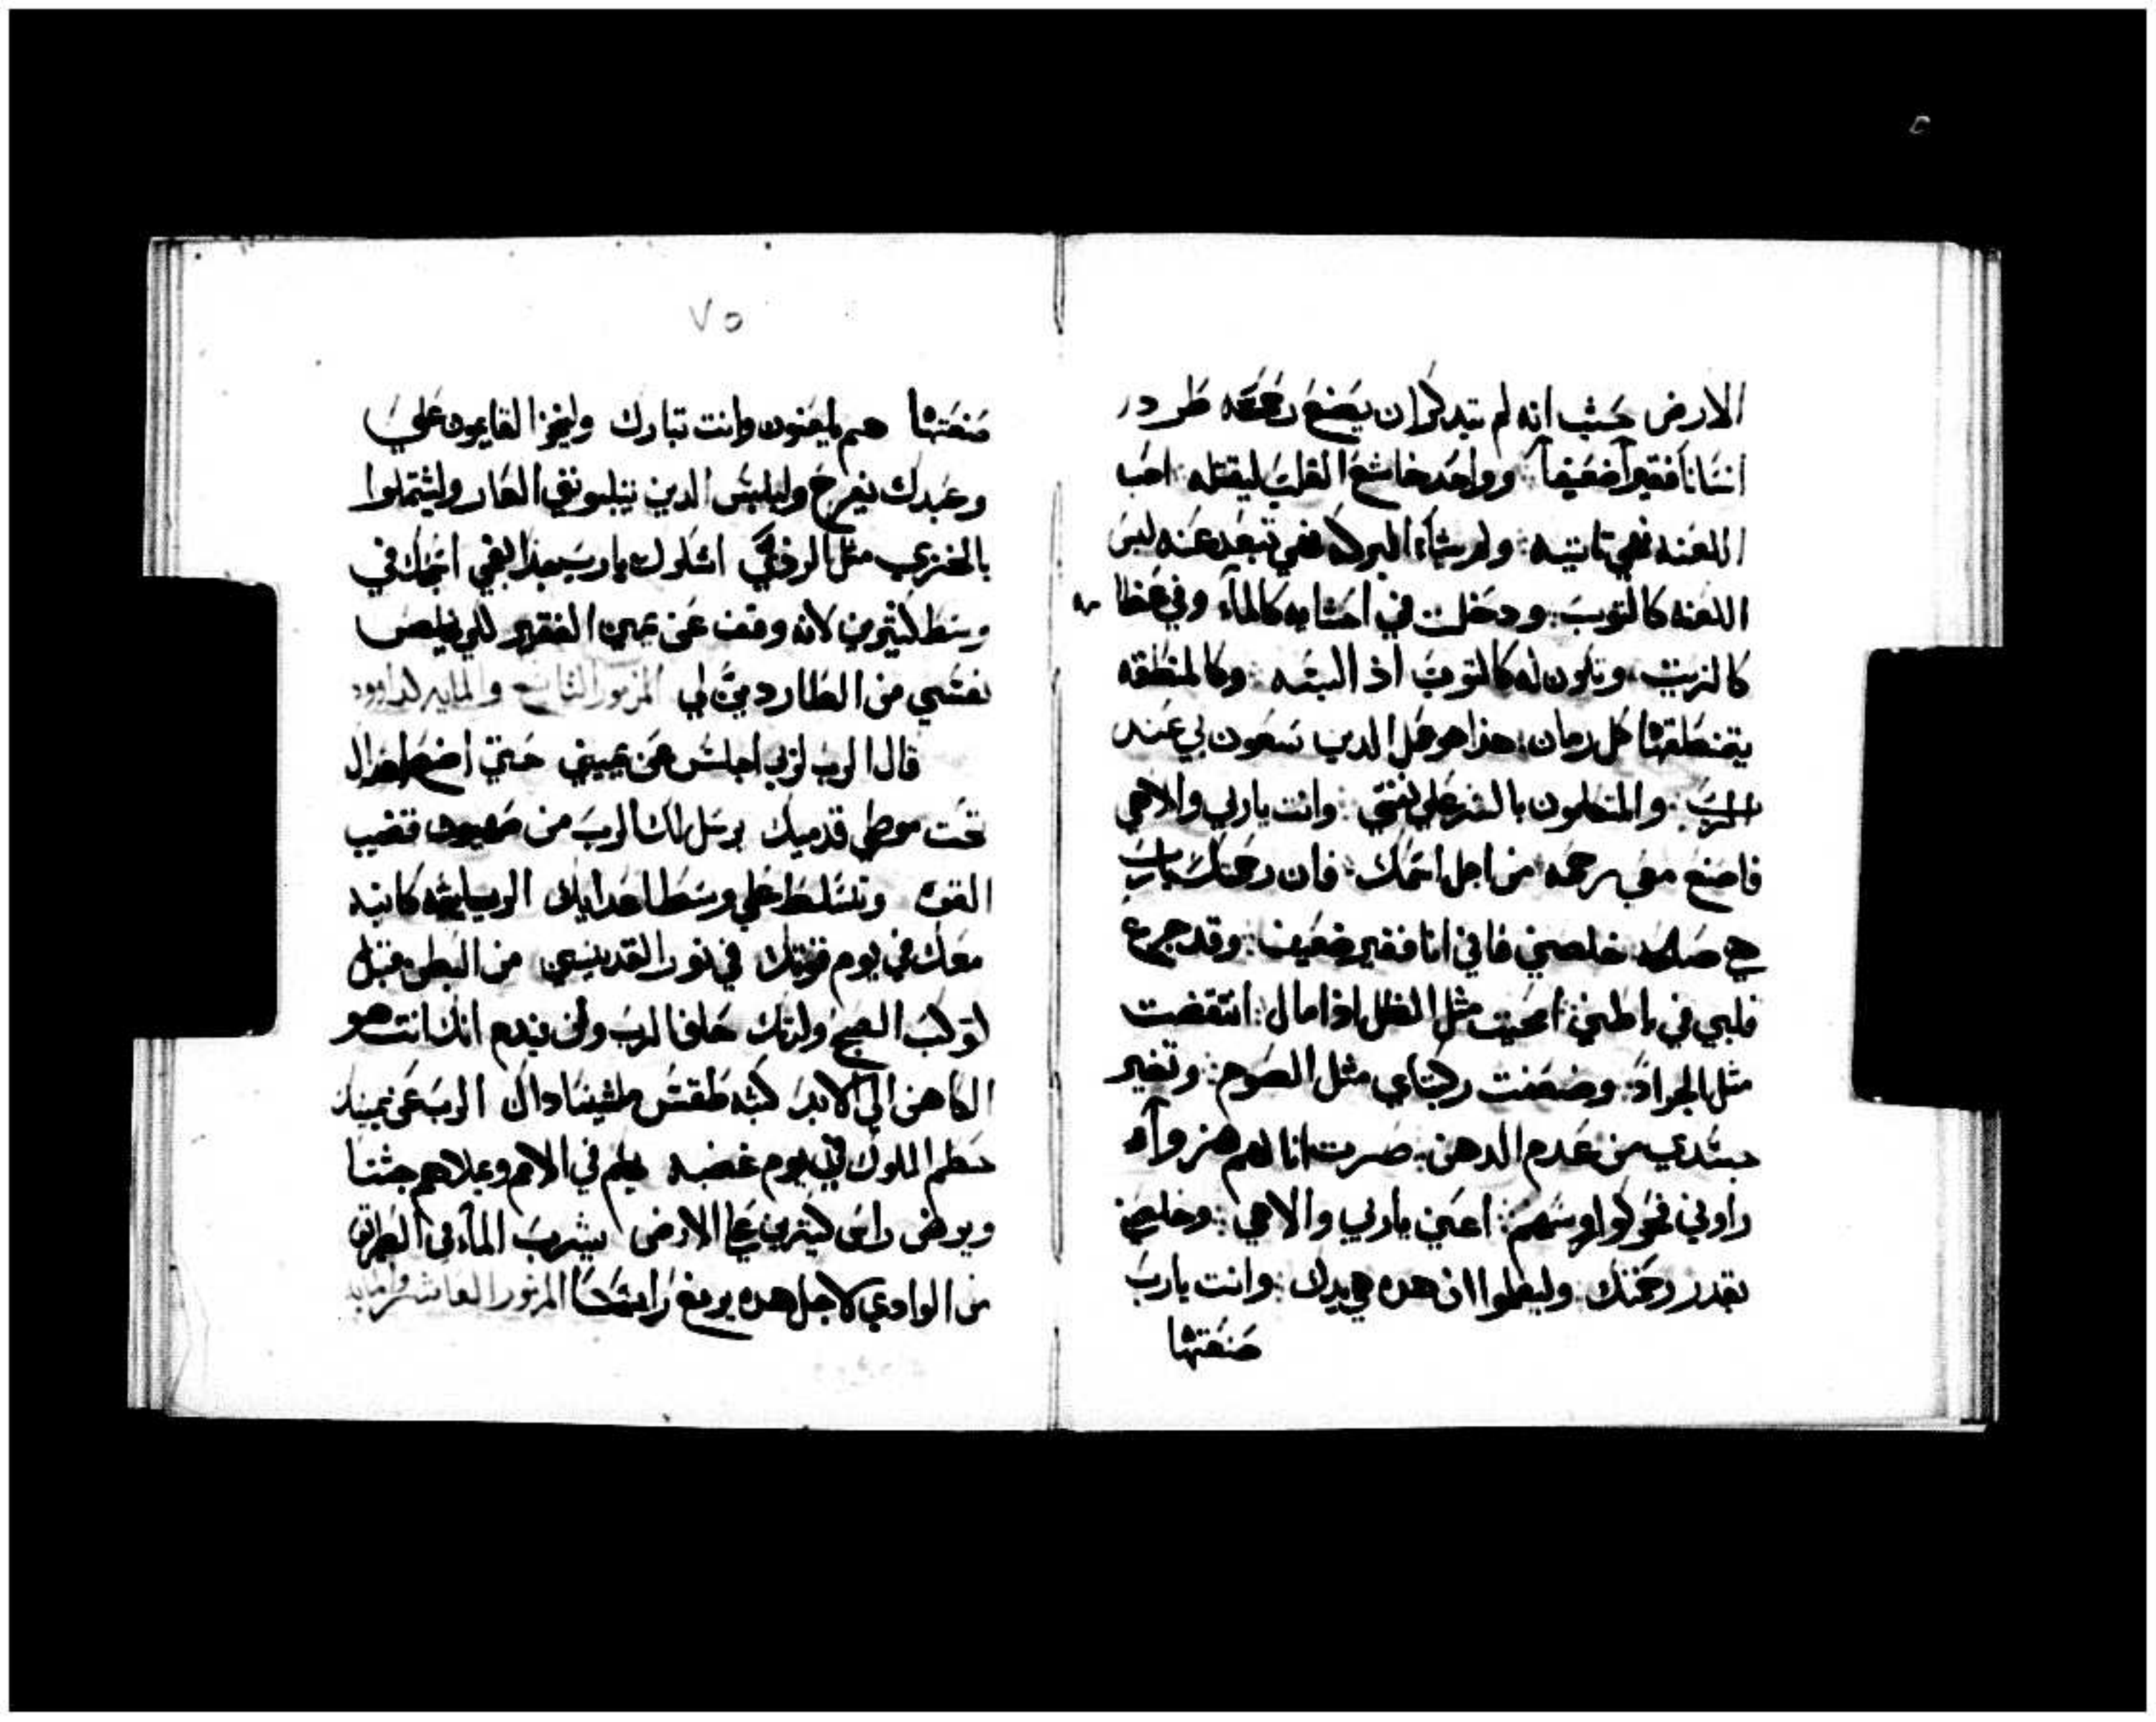 الارض حسب انه لم يتدكر ان يصنع رحمه طرد
انسانا فقيرا ضعيفا وواحد خاشع القلب ليقتله احب
اللعنه فهي تاتيه ولم يشاء البركه فهي تبعد عنه لبس
اللعنه كالتوب ودخلت في احشايه كالماء وفي عظامه
كالزيت وتكون له كالتوب اذ البسه وكالمنطقه
يتمنطقها كل زمان هذا هو عمل الدين يسعون بي عند
الرب والمتكلمون بالشر علي نفسي وانت ياربي والاهي
فاصنع معي رحمه من اجل اسمك فان رحمتك يارب
هي خلصني فاني انا فقير ضعيف وقد جزع
قلبي في باطني امحيت مثل الظل اذا مال انتفضت
مثل الجراد وضعفت ركبتاي مثل الصوم وتغير
جسدي من عدم الدهن صرت انا لهم هزوآء
راوني فحركوا روسهم اعني ياربي والاهي وخلصني
بقدر رحمتك وليعلموا ان هده هي يدك وانت يارب
صنعتها
٧٥
صنعتها هم يلعنون وانت تبارك وليخزا القايمون علي
وعبدك يفرح وليلبس الدين يتلبوني العار وليشتملوا
بالخزي مثل الردي اشكرك يارب بفمي اسبحك في
وسط كثيرين لانه وقف عن يمين الفقير لكي يخلص
نفسي من الطاردين لي المزمور التاسع والمايه لداوود
قال الرب لربي اجلس عن يميني حتي اضع اعداك
تحت موطي قدميك يرسل لك الرب من صهيون قضيب
القوه وتتسلط علي وسط اعدايك الرياسه كاينه
معك في يوم قوتك في نور القديسين من البطن قبل
كوكب الصبح ولدتك حلف الرب ولن يندم انك انت هو
الكاهن الي الابد كشبه طقس ملشيساداك الرب عن يمينك
حطم الملوك في يوم غضبه يحكم في الامم ويملاهم جثثا
ويرض راس كثيرين علي الارض يشرب الماء في الطريق
من الوادي لاجل هده يرفع راسا المزمور العاشر والمايه